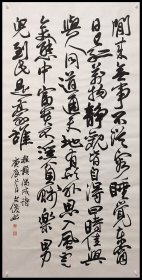 閒来無事不從容睡覺東窗
日已紅萬物静觀皆自得四時佳興
與人同道通天地有形外思入風雲
變態中富貴不淫貧賤樂男
兒到此是豪雄
程顥偶成詩